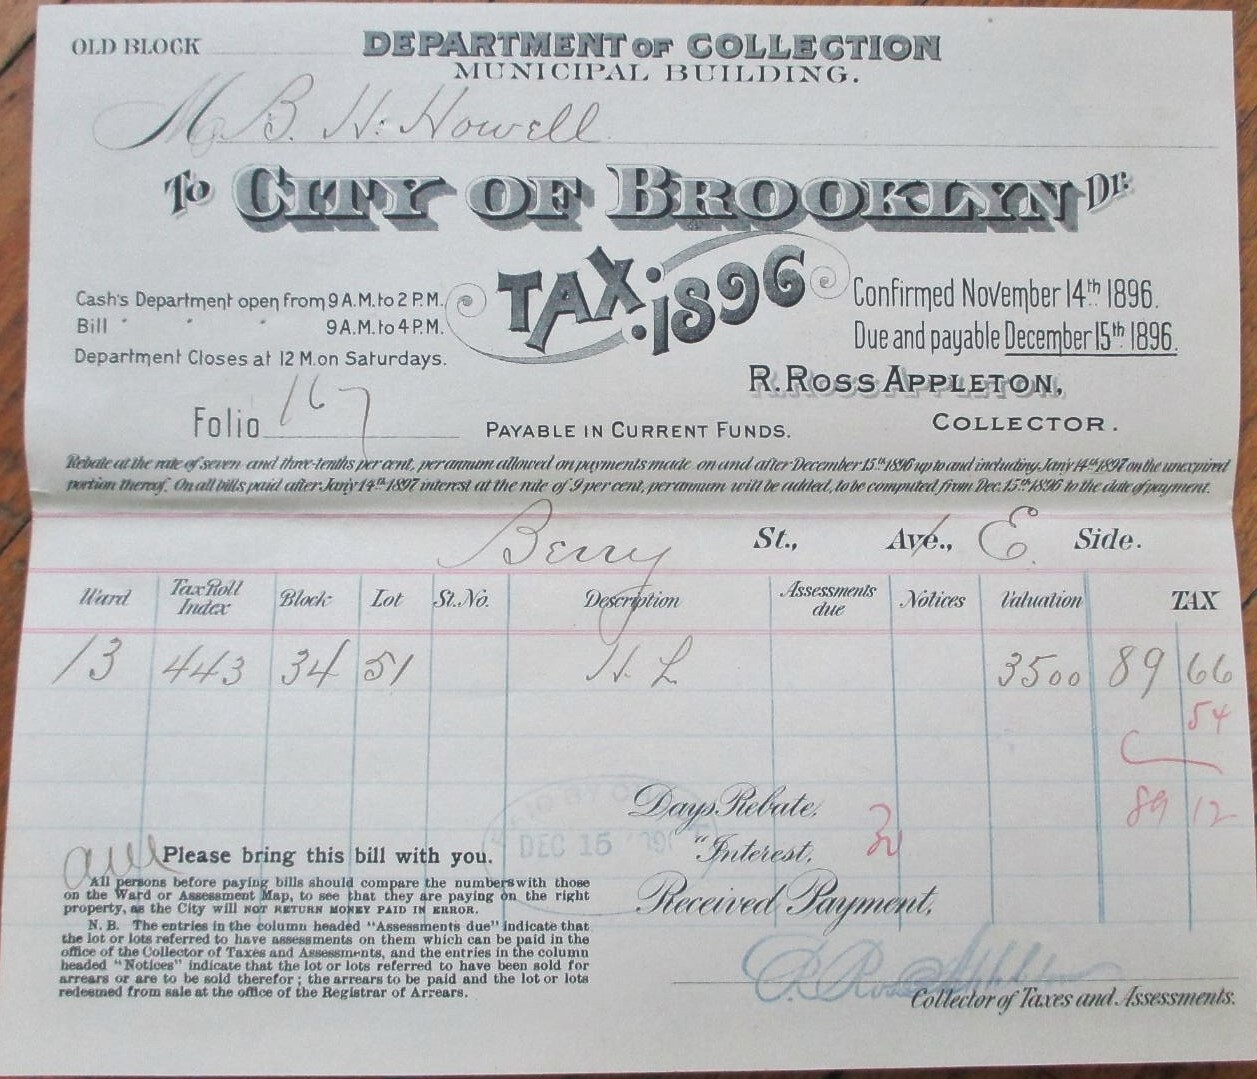 OLD BLOCK
DEPARTMENT OF COLLECTION
MUNICIPAL BUILDING.
M B. H. Howell
To CITY OF BROOKLYN Dr.
TAX: 1896
Cash's Department open from 9 A.M. to 2 P.M.
Bill " " " 9 A.M. to 4 P.M.
Department Closes at 12 M. on Saturdays.
Confirmed November 14th 1896.
Due and payable December 15th 1896.
R. ROSS APPLETON,
COLLECTOR.
Folio 167
PAYABLE IN CURRENT FUNDS.
Rebate at the rate of seven and three-tenths per cent, per annum allowed on payments made on and after December 15th 1896 up to and including Jan'y 14th 1897 on the unexpired
portion thereof. On all bills paid after Jan'y 14th 1897 interest at the rate of 9 per cent, per annum will be added, to be computed from Dec. 15th 1896 to the date of payment.
Berry St., Ave., E Side.
Ward Tax Roll Index Block Lot St. No. Description Assessments due Notices Valuation TAX
13 443 34 51 H. L 3500 89 66
54
89 12
Days Rebate,
" Interest,
DEC 15
Received Payment,
Please bring this bill with you.
All persons before paying bills should compare the numbers with those
on the Ward or Assessment Map, to see that they are paying on the right
property, as the City will NOT RETURN MONEY PAID IN ERROR.
N. B. The entries in the column headed "Assessments due" indicate that
the lot or lots referred to have assessments on them which can be paid in the
office of the Collector of Taxes and Assessments, and the entries in the column
headed "Notices" indicate that the lot or lots referred to have been sold for
arrears or are to be sold therefor; the arrears to be paid and the lot or lots
redeemed from sale at the office of the Registrar of Arrears.
R. Ross Appleton
Collector of Taxes and Assessments.